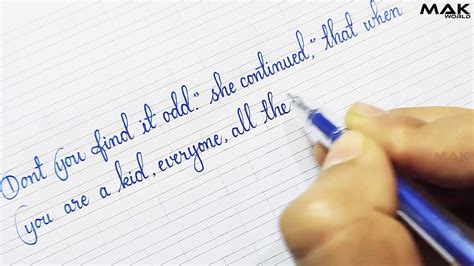 MAK
WORLD
Dont you find it odd." she continued," that when
you are a kid, everyone, all the
MAK WORLD